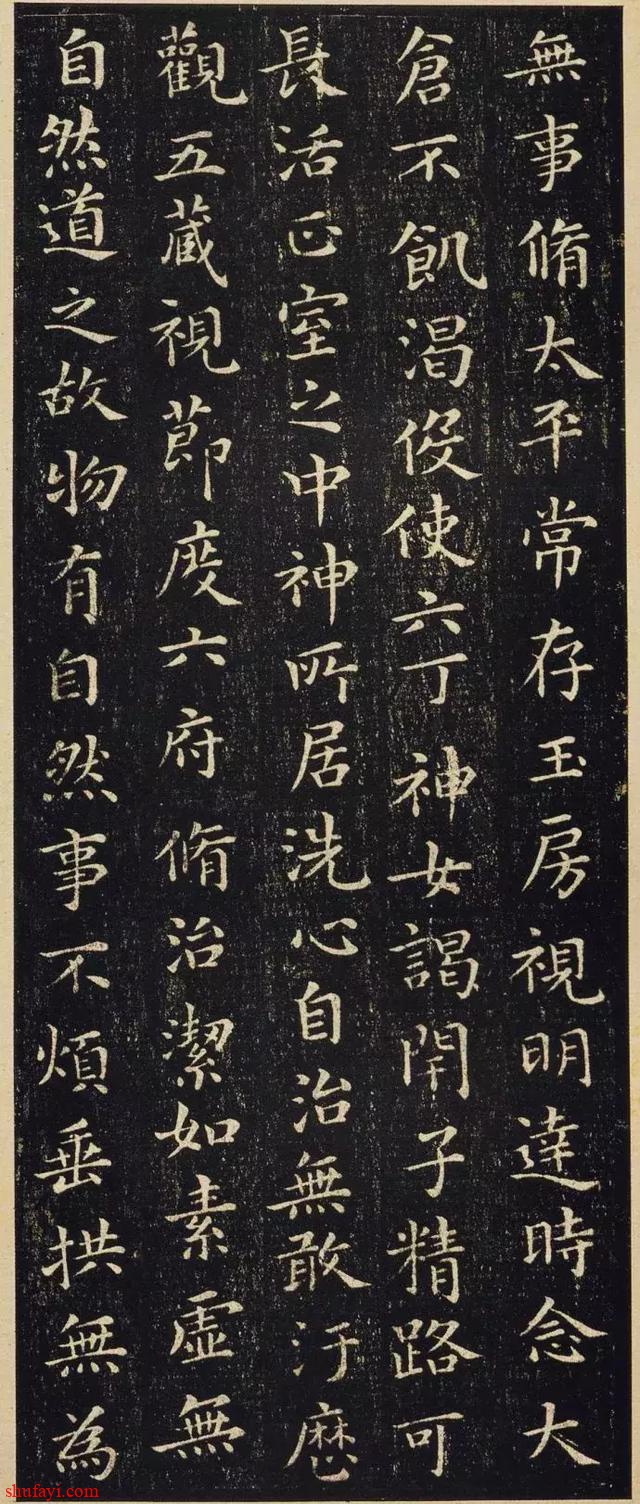 無事脩太平常存玉房視明達時念大
倉不飢渴伇使六丁神女謁閇子精路可
長活正室之中神所居洗心自治無敢汙歴
觀五藏視莭度六府脩治潔如素虛無
自然道之故物有自然事不煩垂拱無為
shufayi.com